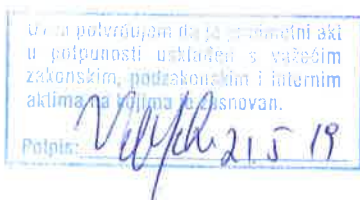 Ovim potvrđujem da je predmetni akt
u potpunosti usklađen s važećim
zakonskim, podzakonskim i internim
aktima na kojima je zasnovan.
Potpis: 21.5 19